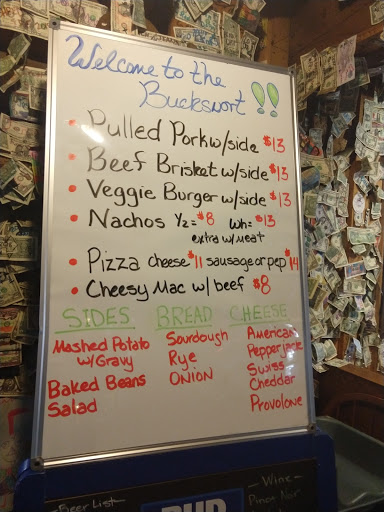 Welcome to the
Buckswort !!
• Pulled Pork w/side $13
• Beef Brisket w/side $13
• Veggie Burger w/side $13
• Nachos ½ = $8 Wh = $13
extra w/meat
• Pizza cheese $11 sausage or pep $14
• Cheesy Mac w/ beef $8
SIDES BREAD CHEESE
Mashed Potato
w/Gravy
Baked Beans
Salad
Sourdough
Rye
ONION
American
Pepperjack
Swiss
Cheddar
Provolone
Beer List
BUD
- Wine -
Pinot Nor